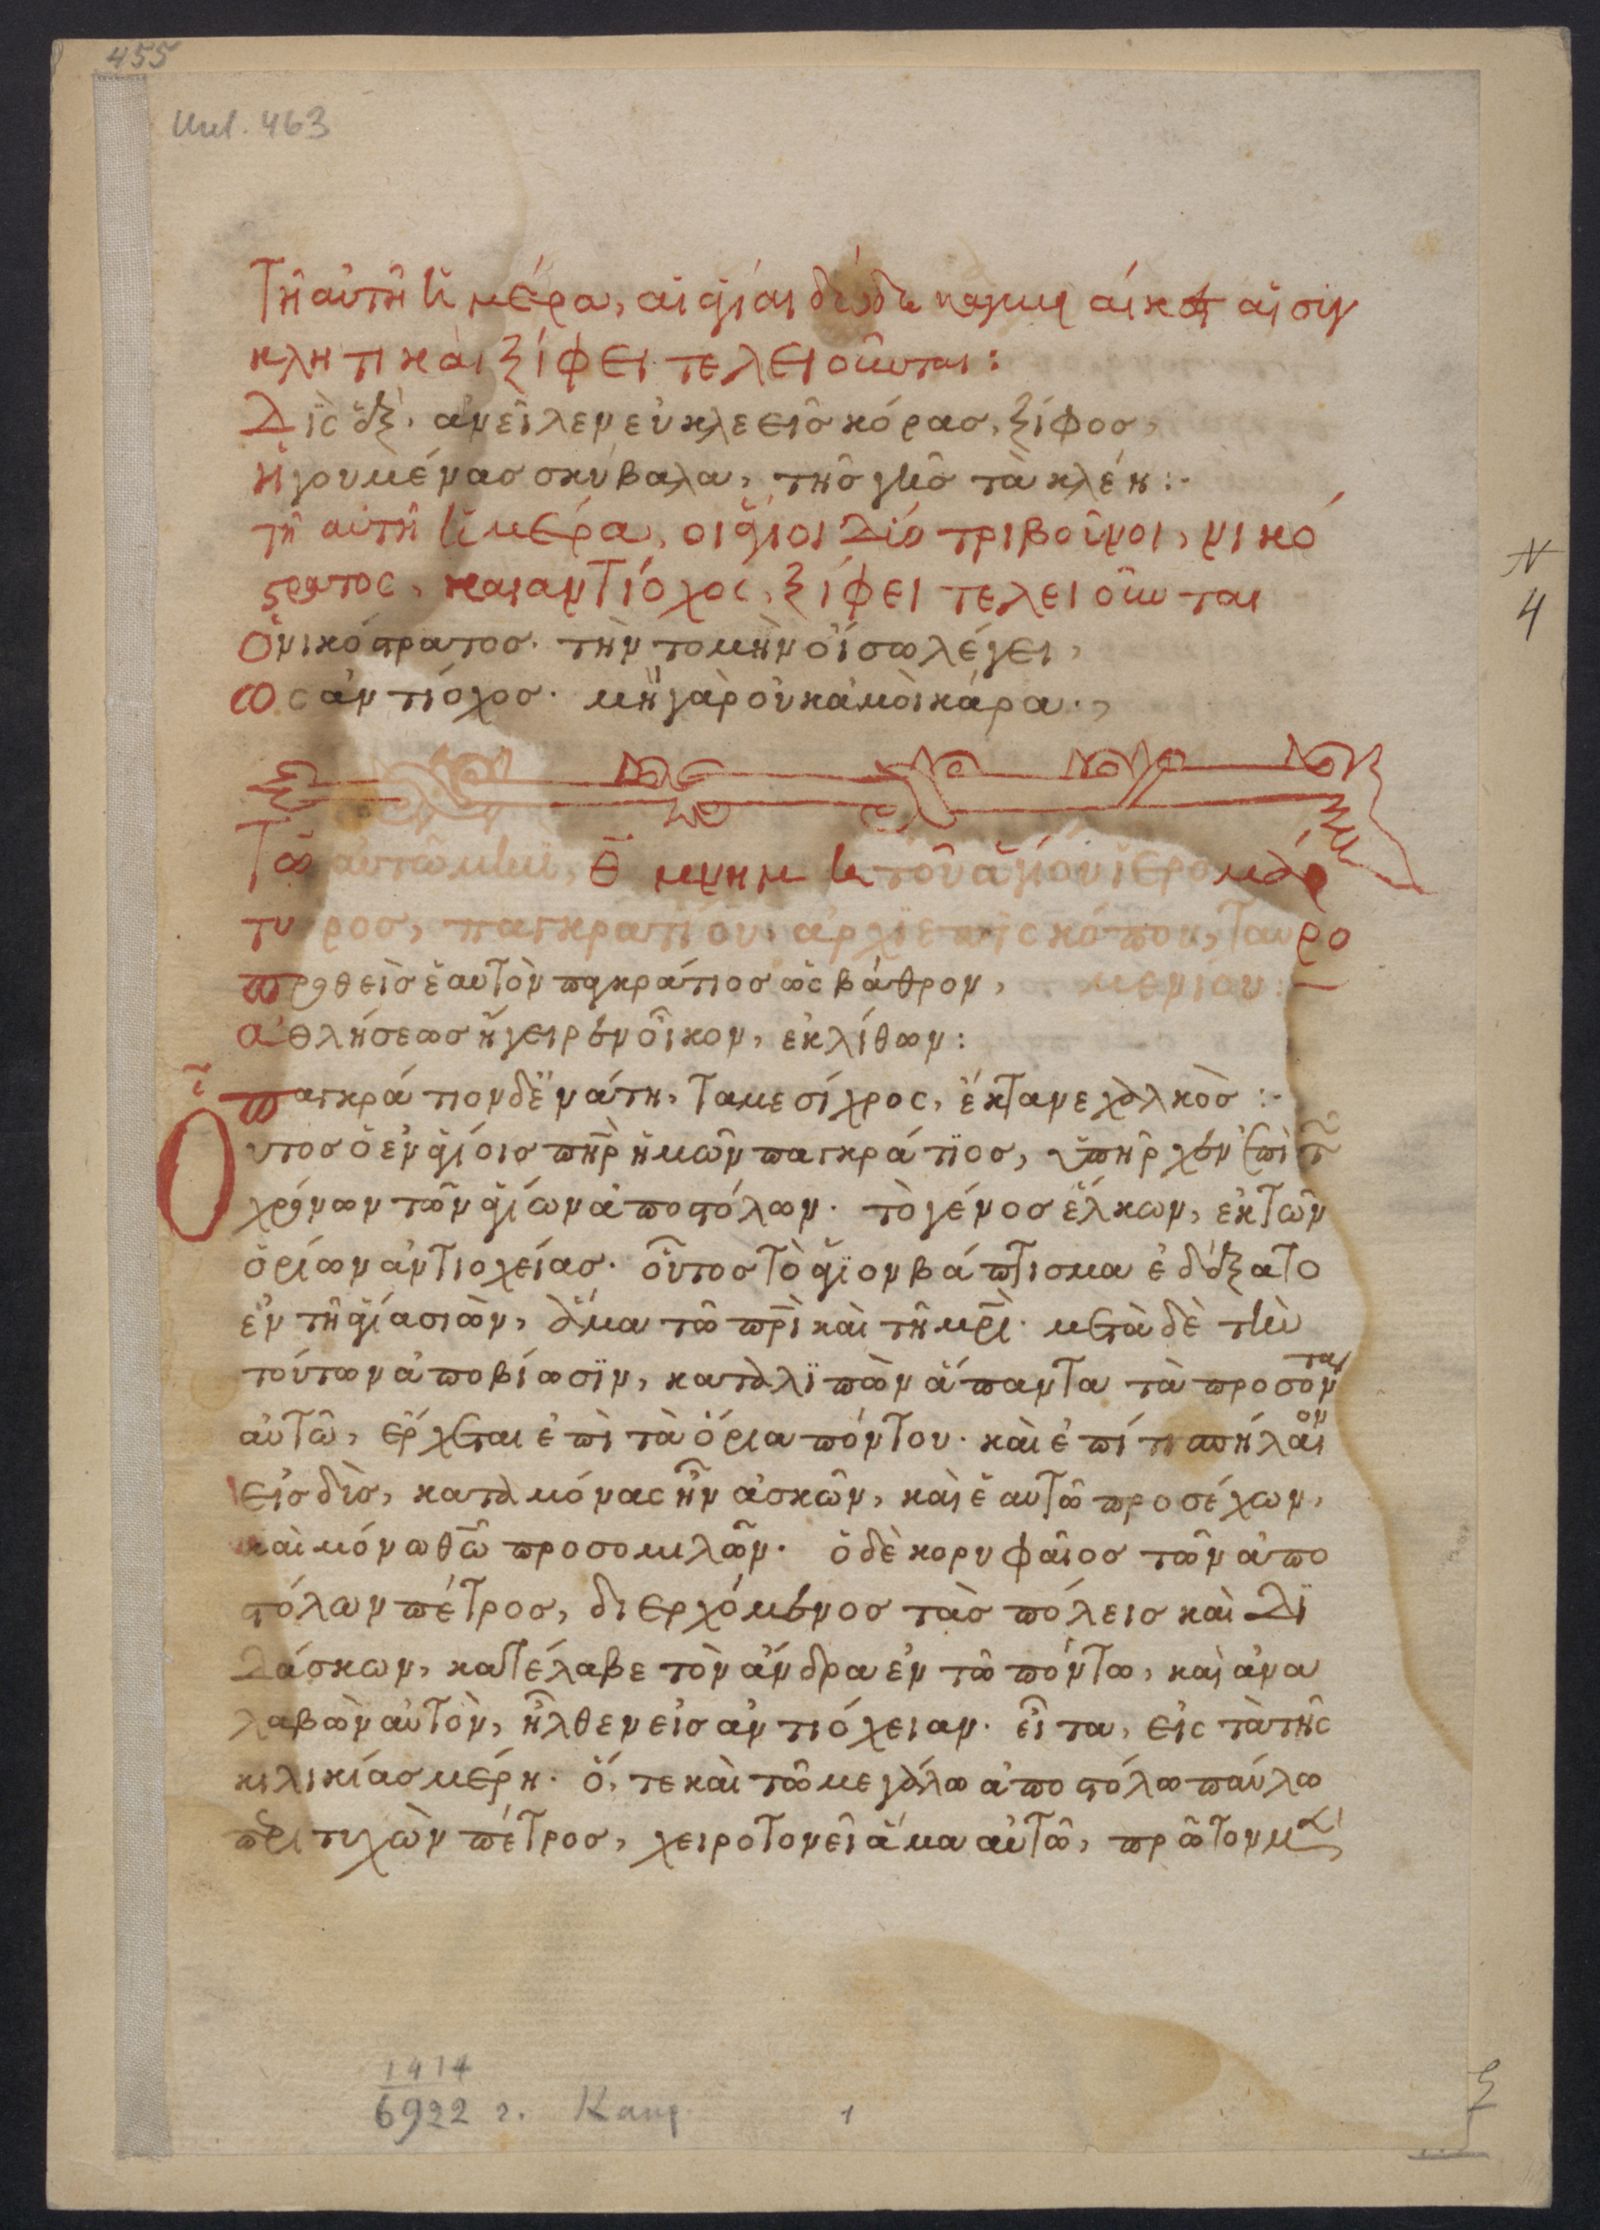 455
Инв. 463
Τῆ αὐτῆ ἡμέρα, αἱ ἅγιαι δώδεκα γυναῖκες αἱ συγ
κλητικαὶ ξίφει τελειοῦνται:
Δὶς ἓξ, ἀνεῖλεν εὐκλεεῖς κόρας, ξίφος,
ἡγουμένας σκύβαλα, τῆς γῆς τὰ κλέη:
τῆ αὐτῆ ἡμέρα, οἱ ἅγιοι δύο τριβοῦνοι, νικό
στρατος, καὶ ἀντίοχος, ξίφει τελειοῦνται
Ὁ νικόστρατος. τὴν τομὴν οἴσω λέγει,
ὡς ἀντίοχος. μὴ γὰρ οὐκ ἀμοὶ κάρα.,
Τῶ αὐτῶ μηνὶ, θ μνήμη τοῦ ἁγίου ἱερομάρ
τυρος, παγκρατίου ἀρχϊεπισκόπου, ταυρο
πρηθεὶς ἑαυτὸν παγκράτιος ὡς βάθρον, μενίου:
ἀθλήσεως ἤγειρεν οἶκον, ἐκ λίθων:
παγκράτιον δ' ἐνάτη, ταμεσίχρος, ἔκτανε χαλκὸς:
Οὗτος ὁ ἐν ἁγίοις πὴρ ἡμῶν παγκράτϊος, ὑπῆρχεν ἐπὶ τῶν
χρόνων τῶν ἁγίων ἀποστόλων. τὸ γένος ἕλκων, ἐκ τῶν
ὁρίων ἀντιοχείας. οὗτος τὸ ἅγϊον βάπτισμα ἐδέξατο
ἐν τῆ ἁγία σιὼν, ἅμα τῶ πρὶ καὶ τῆ μρὶ. μετὰ δὲ τὴν
τούτων ἀποβίωσϊν, καταλϊπὼν ἅπαντα τὰ προσόντα
αὐτῶ, ἔρχεται ἐπὶ τὰ ὅρια πόντου. καὶ ἐπί τι σπήλαιον
εἰσδὺς, κατὰ μόνας ἦν ἀσκῶν, καὶ ἑαυτῶ προσέχων,
καὶ μόνω θῶ προσομιλῶν. ὁ δὲ κορυφαῖος τῶν ἀπο
στόλων πέτρος, διερχόμενος τὰς πόλεις καὶ δϊ
δάσκων, κατέλαβε τὸν ἄνδρα ἐν τῶ πόντω, καὶ ἀνα
λαβὼν αὐτὸν, ἦλθεν εἰς ἀντιόχειαν. εἶτα, εἰς τὰ τῆς
κιλικίας μέρη. ὅ, τε καὶ τῶ μεγάλω ἀποστόλω παύλω
περιτυχὼν πέτρος, χειροτονεῖ ἅμα αὐτῶ, πρῶτον μὲν
N
4
1414
6922 г.
1